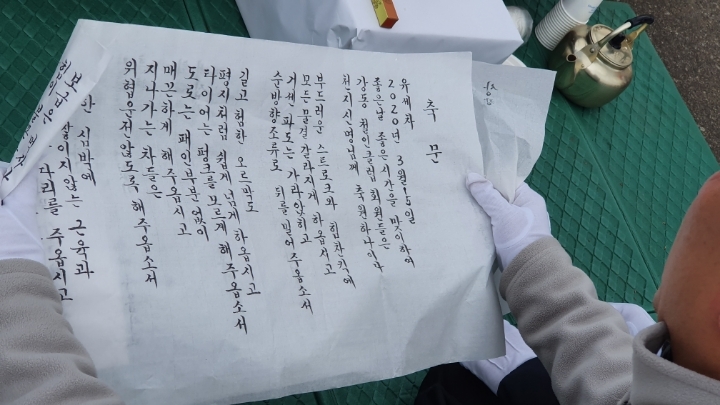 축 문
유세차
2020년 3월 15일
좋은날 좋은시간을 맞이하여
강동 철인클럽 회원들은
천지신명님께 축원하나이다
부드러운 스트로크와 힘찬킥에
모든 물결 갈라지게 하옵시고
거센 파도는 가라앉히고
순방향조류로 뒤를 밀어주옵소서
길고 험한 오르막도
평지처럼 쉽게 넘게 하옵시고
타이어는 펑크를 모르게 해주옵소서
도로는 패인부분 없이
매끈하게 해주옵시고
지나가는 차들은
위협운전 않도록 해주옵소서
한 심박에
않는 근육과
다리를 주옵시고